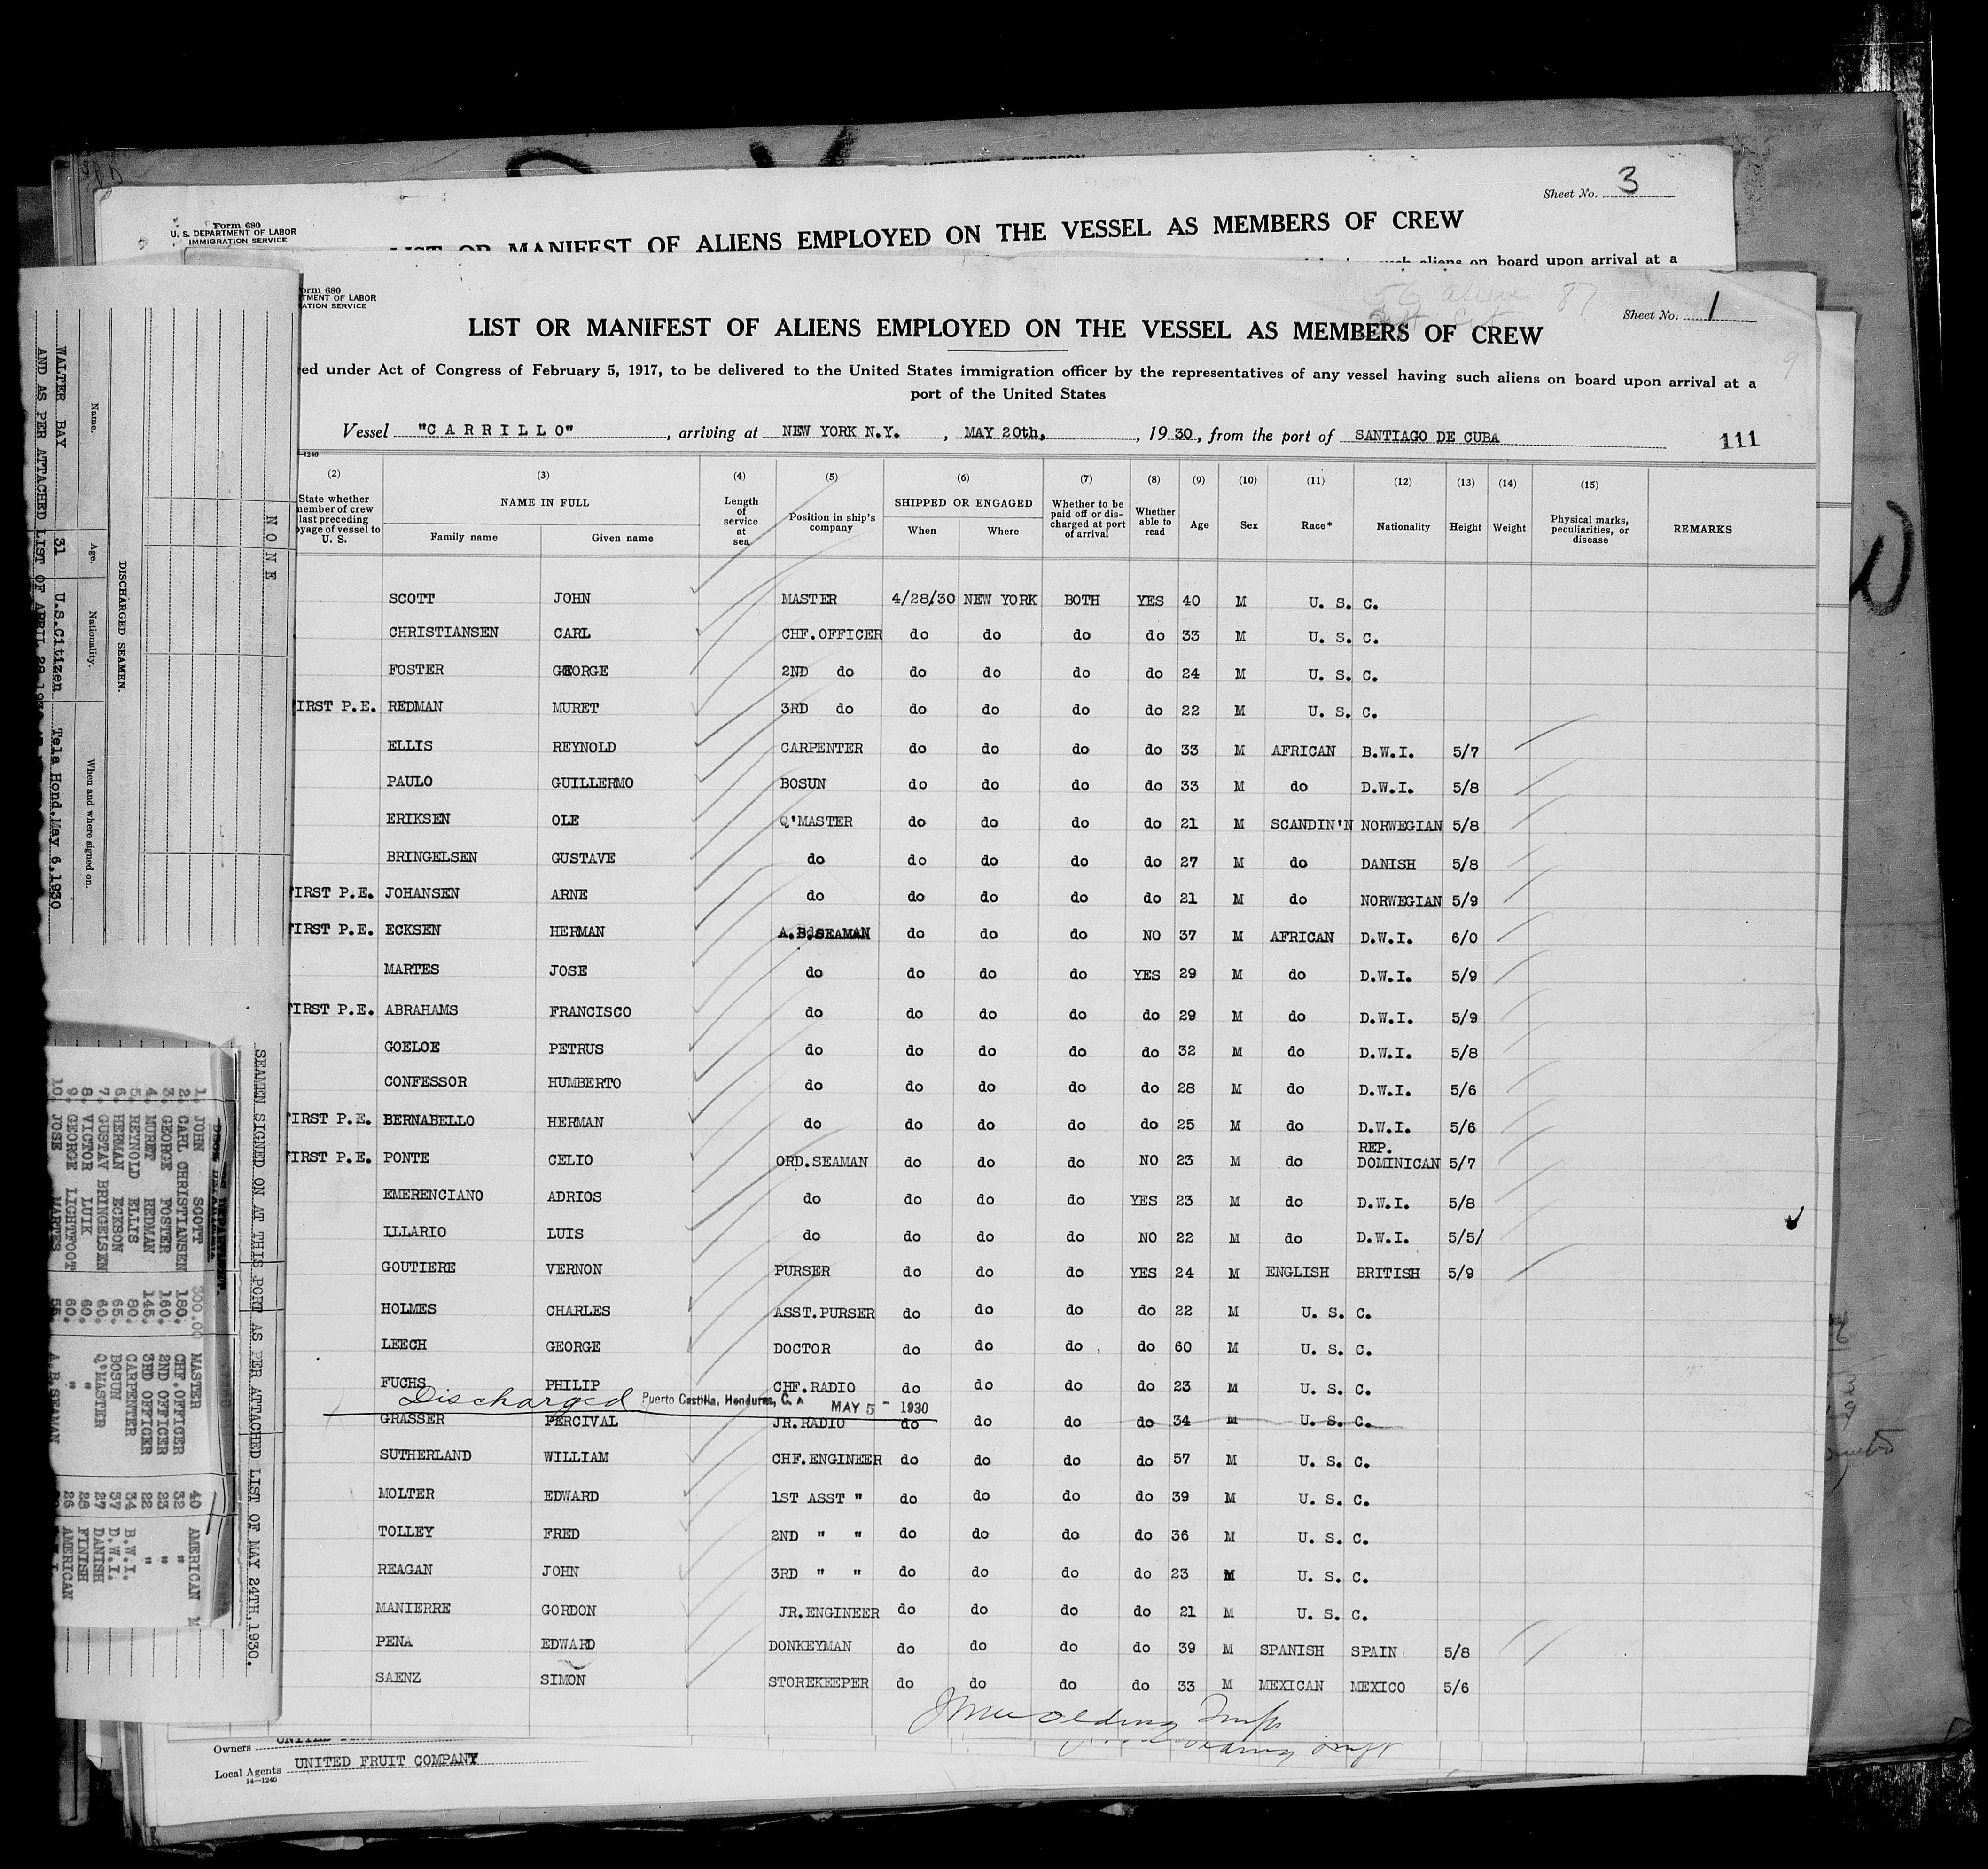 Sheet No. 3
Form 680
U. S. DEPARTMENT OF LABOR
IMMIGRATION SERVICE
LIST OR MANIFEST OF ALIENS EMPLOYED ON THE VESSEL AS MEMBERS OF CREW
such aliens on board upon arrival at a
56 aliens 87
Sheet No. 1
orm 680
TMENT OF LABOR
ATION SERVICE
LIST OR MANIFEST OF ALIENS EMPLOYED ON THE VESSEL AS MEMBERS OF CREW
ed under Act of Congress of February 5, 1917, to be delivered to the United States immigration officer by the representatives of any vessel having such aliens on board upon arrival at a
port of the United States
Vessel "CARRILLO", arriving at NEW YORK N.Y., MAY 20th, , 1930, from the port of SANTIAGO DE CUBA 111
—1240
(2) (3) (4) (5) (6) (7) (8) (9) (10) (11) (12) (13) (14) (15)
State whether member of crew last preceding oyage of vessel to U. S. NAME IN FULL Family name Given name Length of service at sea Position in ship's company SHIPPED OR ENGAGED When Where Whether to be paid off or discharged at port of arrival Whether able to read Age Sex Race* Nationality Height Weight Physical marks, peculiarities, or disease REMARKS
SCOTT JOHN MASTER 4/28/30 NEW YORK BOTH YES 40 M U. S. C.
CHRISTIANSEN CARL CHF.OFFICER do do do do 33 M U. S. C.
FOSTER GEORGE 2ND do do do do do 24 M U. S. C.
IRST P.E. REDMAN MURET 3RD do do do do do 22 M U. S. C.
ELLIS REYNOLD CARPENTER do do do do 33 M AFRICAN B.W.I. 5/7
PAULO GUILLERMO BOSUN do do do do 33 M do D.W.I. 5/8
ERIKSEN OLE Q'MASTER do do do do 21 M SCANDIN'N NORWEGIAN 5/8
BRINGELSEN GUSTAVE do do do do do 27 M do DANISH 5/8
FIRST P.E. JOHANSEN ARNE do do do do do 21 M do NORWEGIAN 5/9
FIRST P.E. ECKSEN HERMAN A.B.SEAMAN do do do NO 37 M AFRICAN D.W.I. 6/0
MARTES JOSE do do do do YES 29 M do D.W.I. 5/9
FIRST P.E. ABRAHAMS FRANCISCO do do do do do 29 M do D.W.I. 5/9
GOELOE PETRUS do do do do do 32 M do D.W.I. 5/8
CONFESSOR HUMBERTO do do do do do 28 M do D.W.I. 5/6
FIRST P.E. BERNABELLO HERMAN do do do do do 25 M do D.W.I. 5/6
FIRST P.E. PONTE CELIO ORD.SEAMAN do do do NO 23 M do REP. DOMINICAN 5/7
EMERENCIANO ADRIOS do do do do YES 23 M do D.W.I. 5/8
ILLARIO LUIS do do do do NO 22 M do D.W.I. 5/5/
GOUTIERE VERNON PURSER do do do YES 24 M ENGLISH BRITISH 5/9
HOLMES CHARLES ASST.PURSER do do do do 22 M U. S. C.
LEECH GEORGE DOCTOR do do do do 60 M U. S. C.
FUCHS PHILIP CHF.RADIO do do do do 23 M U. S. C.
Discharged Puerto Castilla, Honduras, C. A MAY 5 - 1930
GRASSER PERCIVAL JR.RADIO do do do do 34 M U. S. C.
SUTHERLAND WILLIAM CHF.ENGINEER do do do do 57 M U. S. C.
MOLTER EDWARD 1ST ASST " do do do do 39 M U. S. C.
TOLLEY FRED 2ND " " do do do do 36 M U. S. C.
REAGAN JOHN 3RD " " do do do do 23 M U. S. C.
MANIERRE GORDON JR.ENGINEER do do do do 21 M U. S. C.
PENA EDWARD DONKEYMAN do do do do 39 M SPANISH SPAIN 5/8
SAENZ SIMON STOREKEEPER do do do do 33 M MEXICAN MEXICO 5/6
Owners UNITED
Local Agents UNITED FRUIT COMPANY
14—1240
NONE
DISCHARGED SEAMEN.
Name. Age. Nationality. When and where signed on.
WALTER BAY 31 U.S.Citizen Tela Hond.May 6,1930
AND AS PER ATTACHED LIST OF APRIL 28
SEAMEN SIGNED ON AT THIS PORT AS PER ATTACHED LIST OF MAY 24TH,1930.
1. JOHN SCOTT 300.00 MASTER 40 AMERICAN M
2. CARL CHRISTIANSEN 180. CHF.OFFICER 32 "
3. GEORGE FOSTER 160. 2ND OFFICER 23 "
4. MURET REDMAN 145. 3RD OFFICER 22 "
5. REYNOLD ELLIS 80. CARPENTER 34 B.W.I.
6. HERMAN ECKSON 65. BOSUN 37 D.W.I.
7. GUSTAV BRINGELSEN 60. Q'MASTER 27 DANISH
8. VICTOR LUIK 60. " 28 FINISH
9. GEORGE LIGHTFOOT 60. " 26 AMERICAN
10. JOSE MARTES 55. A.B.SEAMAN